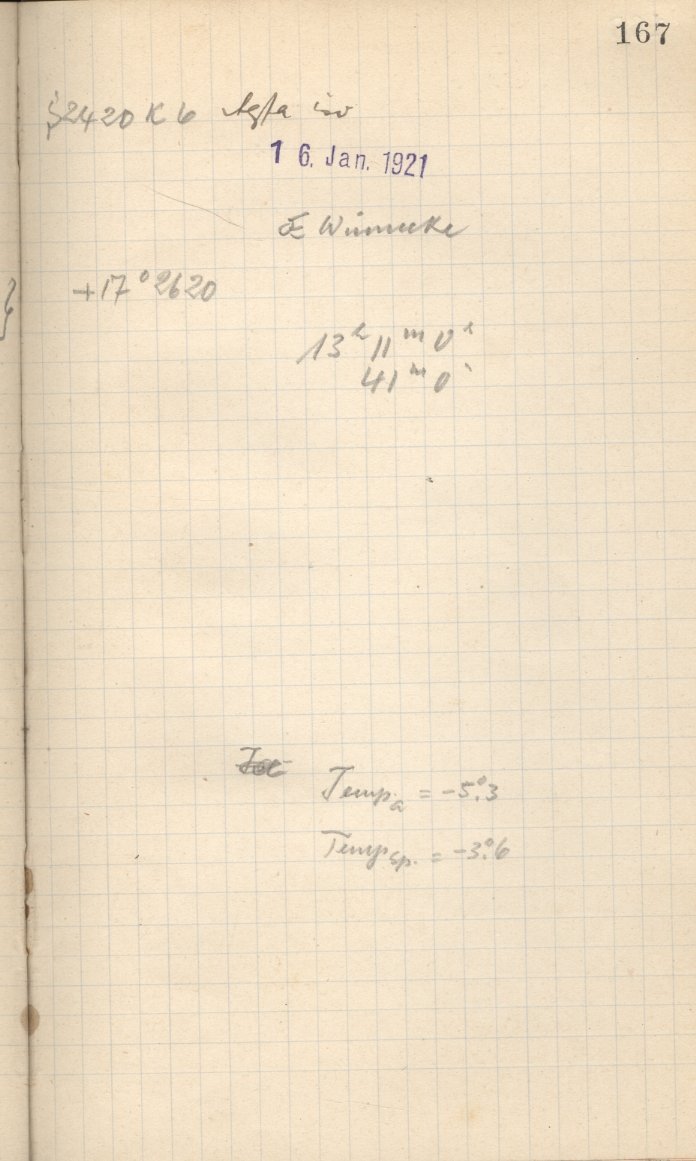 167
2420 K 6 Agfa iso
1 6. Jan. 1921
E Winnecke
+17°2620
13ʰ 11ᵐ 0ˢ
41ᵐ 0ˢ
Tempₐ = -5°.3
Temp Sp. = -3°.6